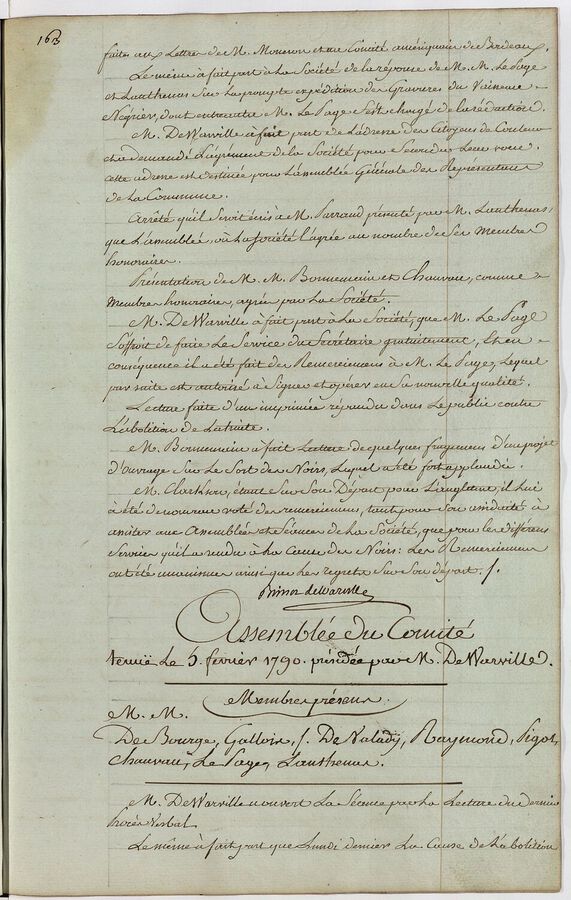 163
faites aux Lettres de M. Moneron et au Comité amériquain de Bordeaux.
Le même à fait part à la Société de la réponse de M. M. Le Page
et Lanthenas sur la prompte expédition des Gravures du Vaisseau
Négrier, dont entr'autre M. Le Page s'est chargé de la rédaction.
M. DeWarville à fait part de L'adresse des Citoyens de Couleur
et a demandé L'agrément de la Société pour Seconder leur voeu.
cette adresse est destinée pour L'assemblée Générale des Représentans
de la Commune.
Arrêté qu'il Seroit écris à M. Parraud présenté par M. Lanthenas;
que L'assemblée, où la Société l'agrée au nombre de Ses Membres
honoraires.
Présentation de M. M. Bonnemain et Chauvau, comme
Membres honoraires, agrées par la Société.
M. DeWarville à fait part à la Société, que M. Le Page
s'offroit de faire Le Service du Secrétaire gratuitement, et en
conséquence il a été fait des Remerciemens à M. Le Page, Lequel
par suite est autorisé à Signer et opérer en sa nouvelle qualité.
Lecture faite d'un imprimée répandu dans le public contre
L'abolition de la traite.
M. Bonnemain à fait Lecture de quelques fragmens d'un projet
d'ouvrage Sur Le Sort des Noirs, Lequel a été fort applaudi.
M. Clarkson, étant Sur Son Départ pour L'angleterre, il Lui
à été de nouveau voté des remerciemens, tant pour Son assiduité à
assister aux Assemblées et Séances de la Société, que pour les différens
Services qu'il a rendu à la Cause des Noirs: Les Remerciemens
ont été unanimes ainsi que les regrets Sur Son départ. /.
Brissot de Warville
Assemblée du Comité
tenuë Le 5. février 1790. présidée par M. DeWarville.
Membres présens
M. M.
De Bourge, Gallois, J. De Valady, Raymond, Pigot,
Chauvau, Le Page, Lanthenas.
M. DeWarville a ouvert La Séance par La Lecture du dernier
Procès Verbal
Le même à fait part que Lundi dernier La Cause de l'abolition